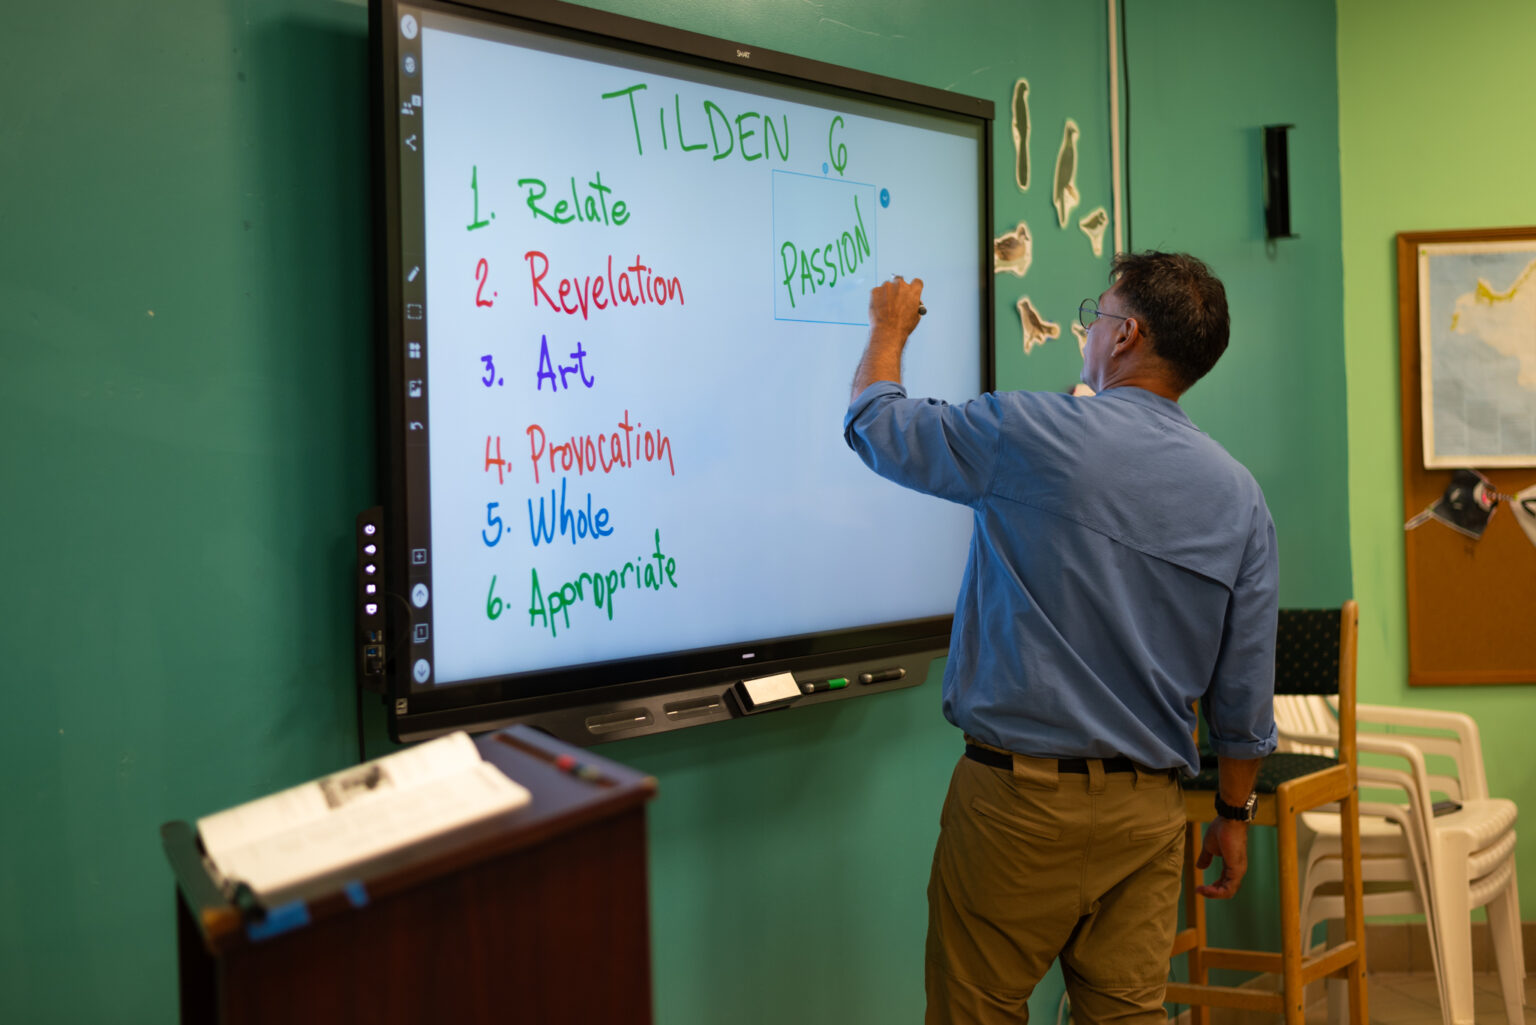 SMART
TILDEN 6
1. Relate
2. Revelation
3. Art
4. Provocation
5. Whole
6. Appropriate
PASSION